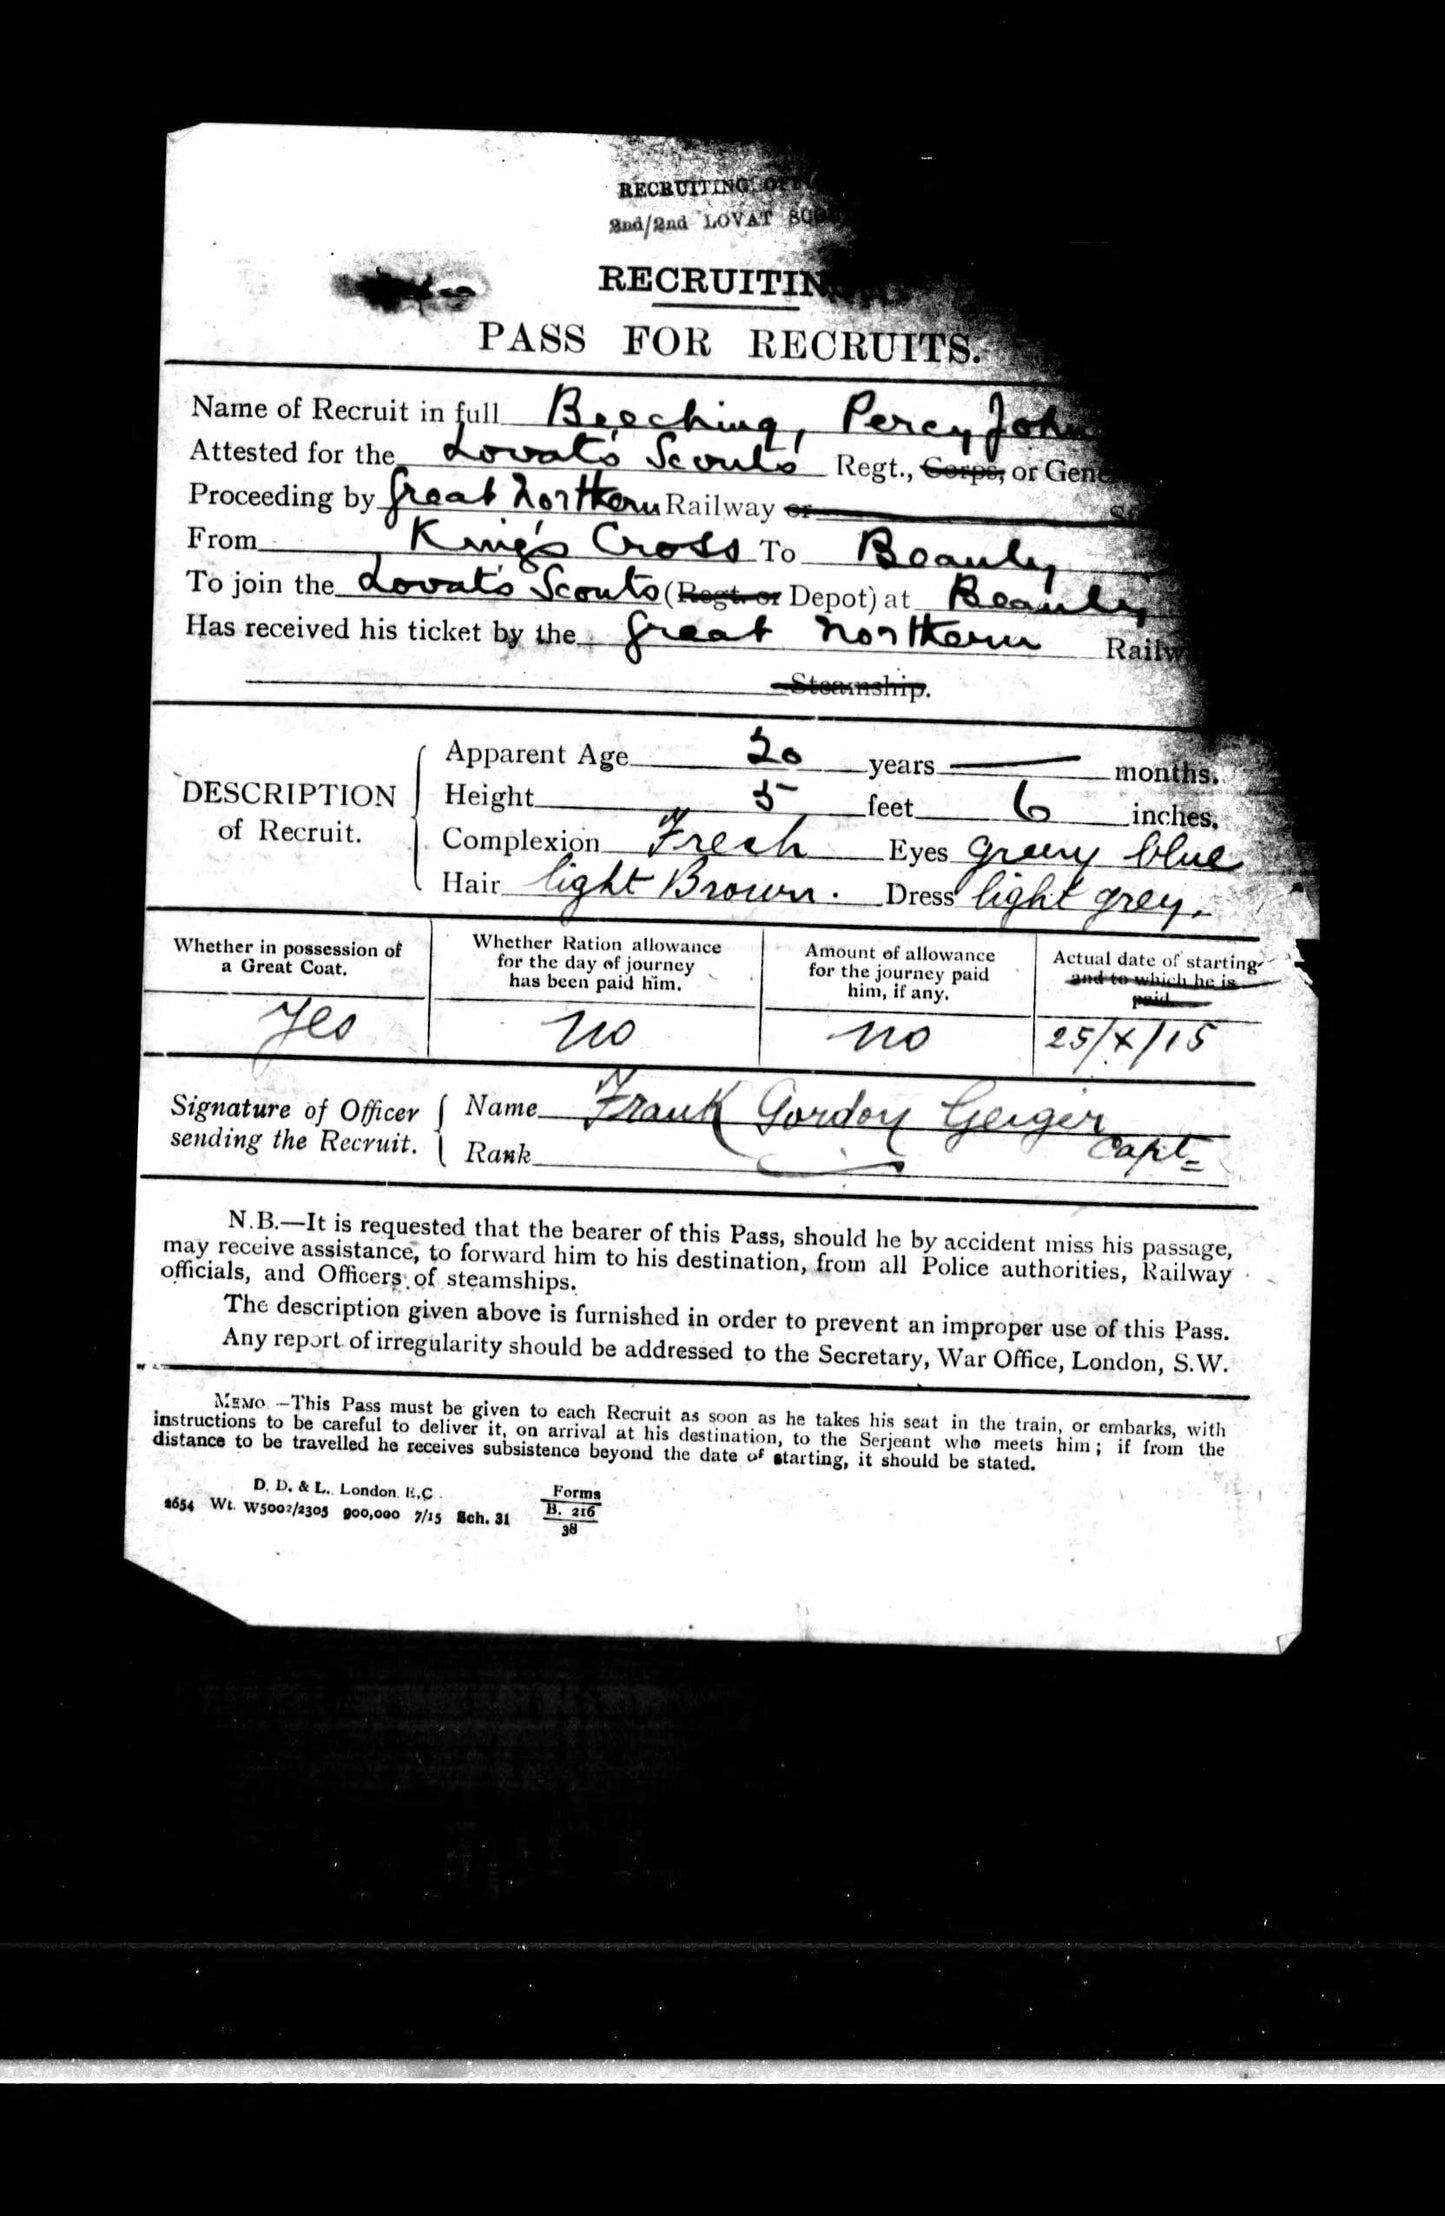 RECRUITING
2nd/2nd LOVAT
RECRUITIN
PASS FOR RECRUITS.
Name of Recruit in full Beeching, Percy John
Attested for the Lovat's Scouts Regt., Corps, or Gene
Proceeding by Great Northern Railway or
From King's Cross To Beauly
To join the Lovat's Scouts (Regt. or Depot) at Beauly
Has received his ticket by the Great Northern Railw
Steamship.
DESCRIPTION of Recruit.
Apparent Age 20 years — months.
Height 5 feet 6 inches.
Complexion Fresh Eyes grey blue
Hair light Brown. Dress light grey.
Whether in possession of a Great Coat.
Whether Ration allowance for the day of journey has been paid him.
Amount of allowance for the journey paid him, if any.
Actual date of starting and to which he is paid
Yes no no 25/X/15
Signature of Officer sending the Recruit.
Name Frank Gordon Geiger
Rank Capt
N.B.—It is requested that the bearer of this Pass, should he by accident miss his passage,
may receive assistance, to forward him to his destination, from all Police authorities, Railway
officials, and Officers of steamships.
The description given above is furnished in order to prevent an improper use of this Pass.
Any report of irregularity should be addressed to the Secretary, War Office, London, S.W.
MEMO.—This Pass must be given to each Recruit as soon as he takes his seat in the train, or embarks, with
instructions to be careful to deliver it, on arrival at his destination, to the Serjeant who meets him; if from the
distance to be travelled he receives subsistence beyond the date of starting, it should be stated.
D. D. & L. London, E.C.
2654 Wt. W5002/2305 900,000 7/15 Sch. 31
Forms
B. 216
38